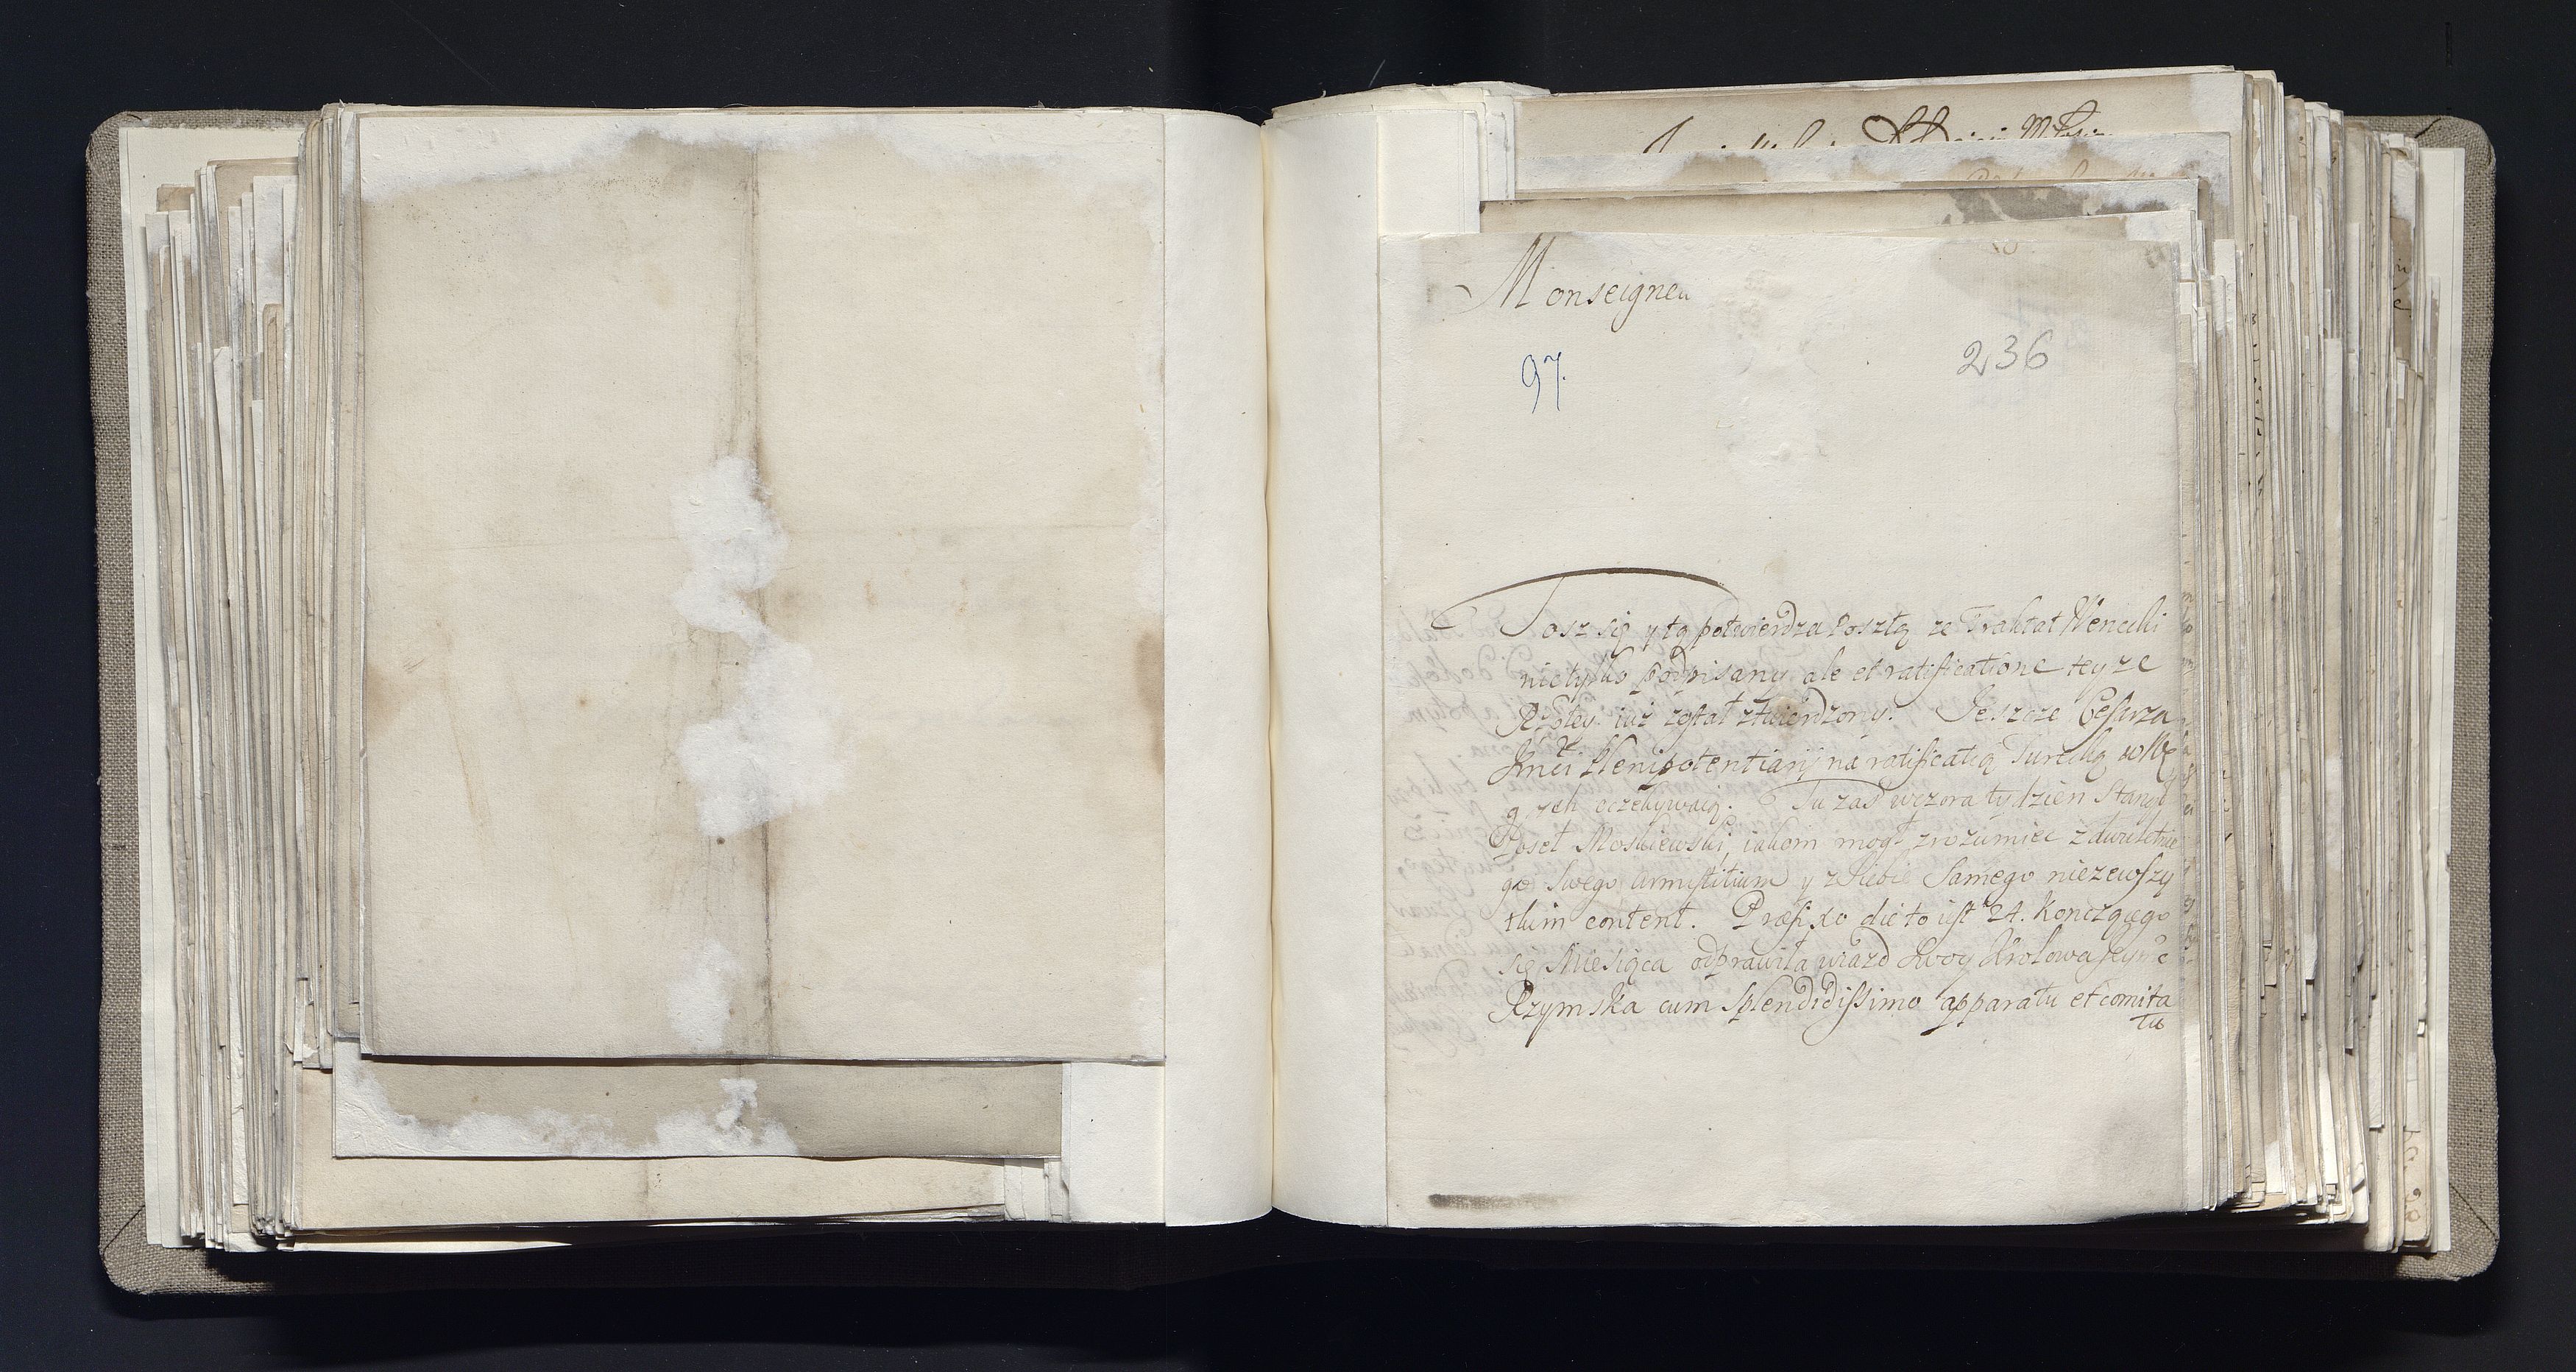 Monseigneu
97.
236
Tosz się y tą potwierdza Posztą ze Traktat Wenecki
nietylko podpisany ale et ratificatione teyze
Rzpltey iuż został ztwierdzony. Jeszcze Cesarza
Jmci Plenipotentiarij na ratificatią Turecką w Wę
grzech oczekywaią. Tu zaś wczora tydzień Stanął
Poseł Moskiewski, iakom mogł zrozumiec z dwuletnie
go Swego Armistitium y z Siebie Samego niezewszy
tkim content. Præfixo die to iest 24. konczącego
się Miesiąca odprawiła wiazd Swoy Krolowa
Rzymska cum Splendidissimo apparatu et comita
tu